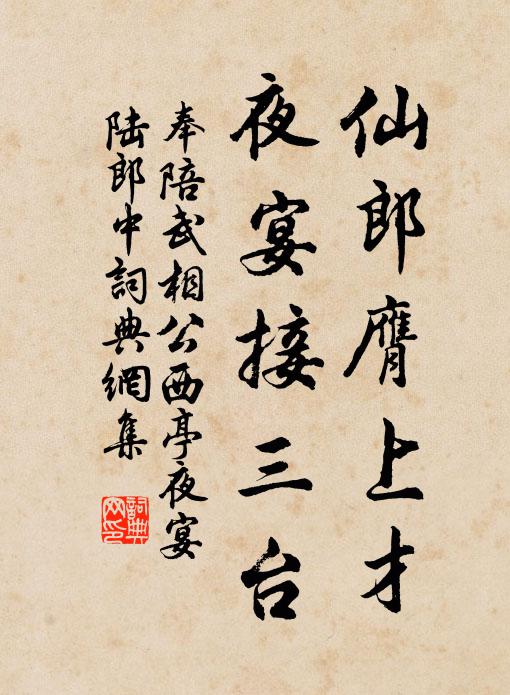 仙郎膺上才
夜宴接三台
奉陪武相公西亭夜宴
陆郎中詞典網集
詞典
网印